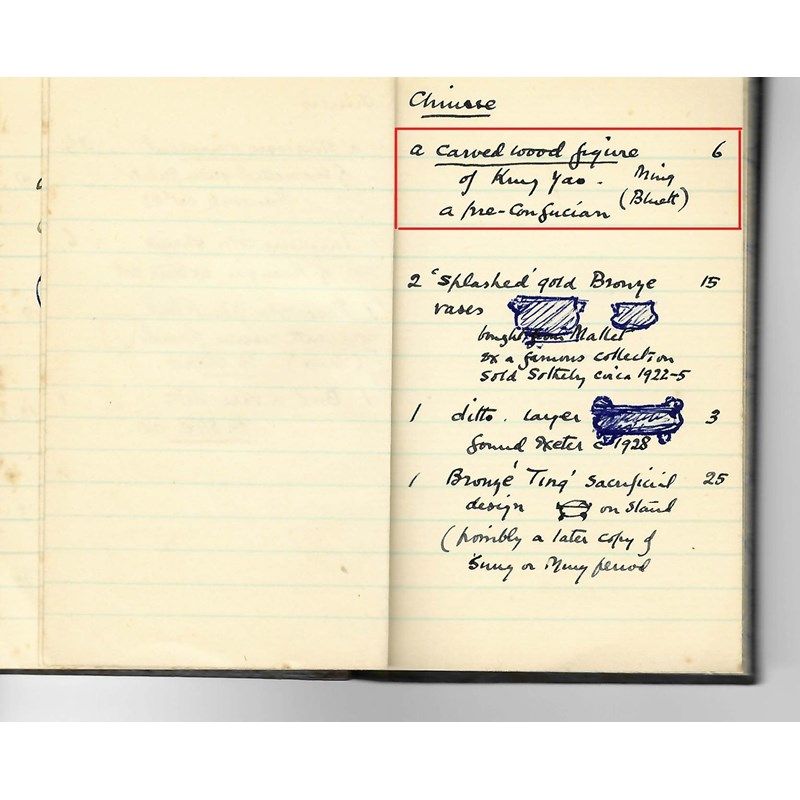 Chinese
a carved wood figure 6
of Kung Yao. Ming
a pre-Confucian (Bluett)
2 'splashed' gold Bronze 15
vases
bought from Mallet
ex a famous collection
sold Sotheby circa 1922-5
1 ditto. larger 3
found Exeter c 1928
1 Bronze 'Ting' sacrificial 25
design on stand
(possibly a later copy of
Sung or Ming period